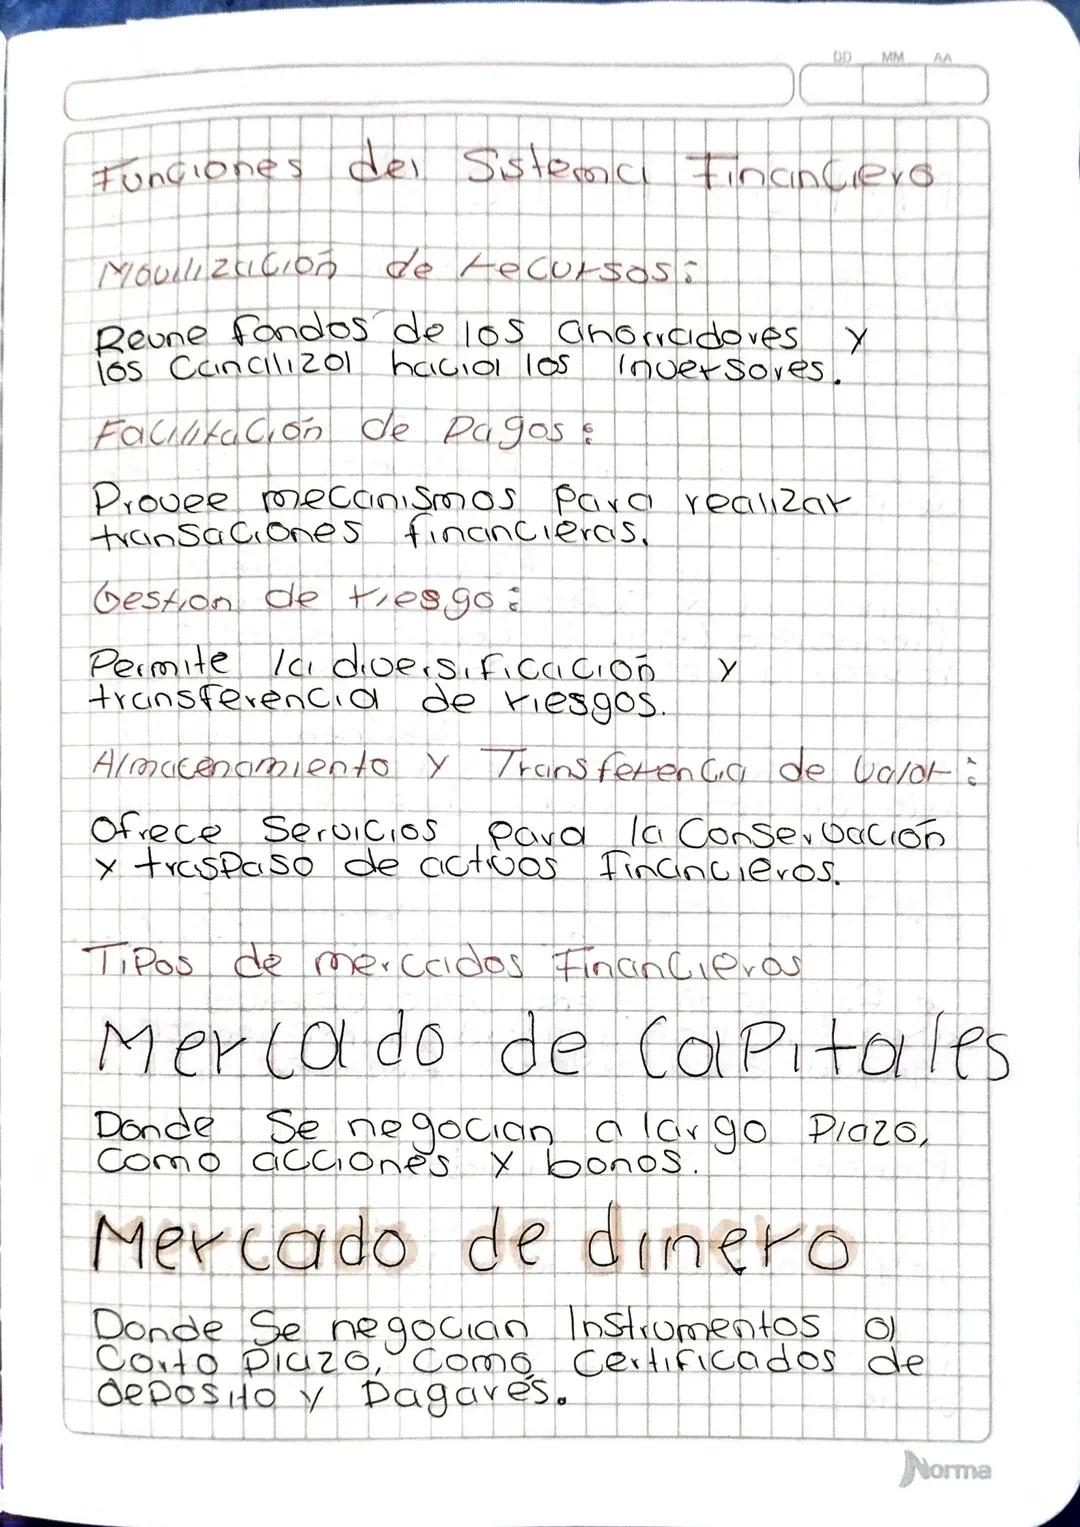 DD MM AA
Funciones del Sistema Financiero
Movilización de recursos:
Reune fondos de los ahorradores y
los Canaliza hacia los Inversores.
Facilitación de Pagos:
Provee mecanismos Para realizar
transaciones financieras.
Gestion de riesgo:
Permite la diversificación y
transferencia de riesgos.
Almacenamiento y Transferencia de valor:
Ofrece Servicios para la Conservación
y traspaso de activos financieros.
Tipos de mercados Financieros
Mercado de Capitales
Donde Se negocian a largo Plazo,
Como acciones y bonos.
Mercado de dinero
Donde Se negocian Instrumentos a
Corto Plazo, Como Certificados de
deposito y Pagarés.
Norma